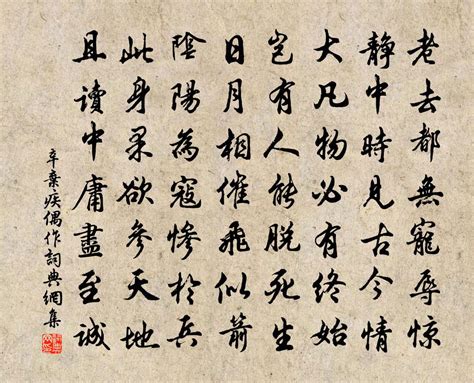 老去都無寵辱驚
靜中時見古今情
大凡物必有終始
豈有人能脫死生
日月相催飛似箭
陰陽為寇慘於兵
此身果欲參天地
且讀中庸盡至誠
辛棄疾偶作詞典網集